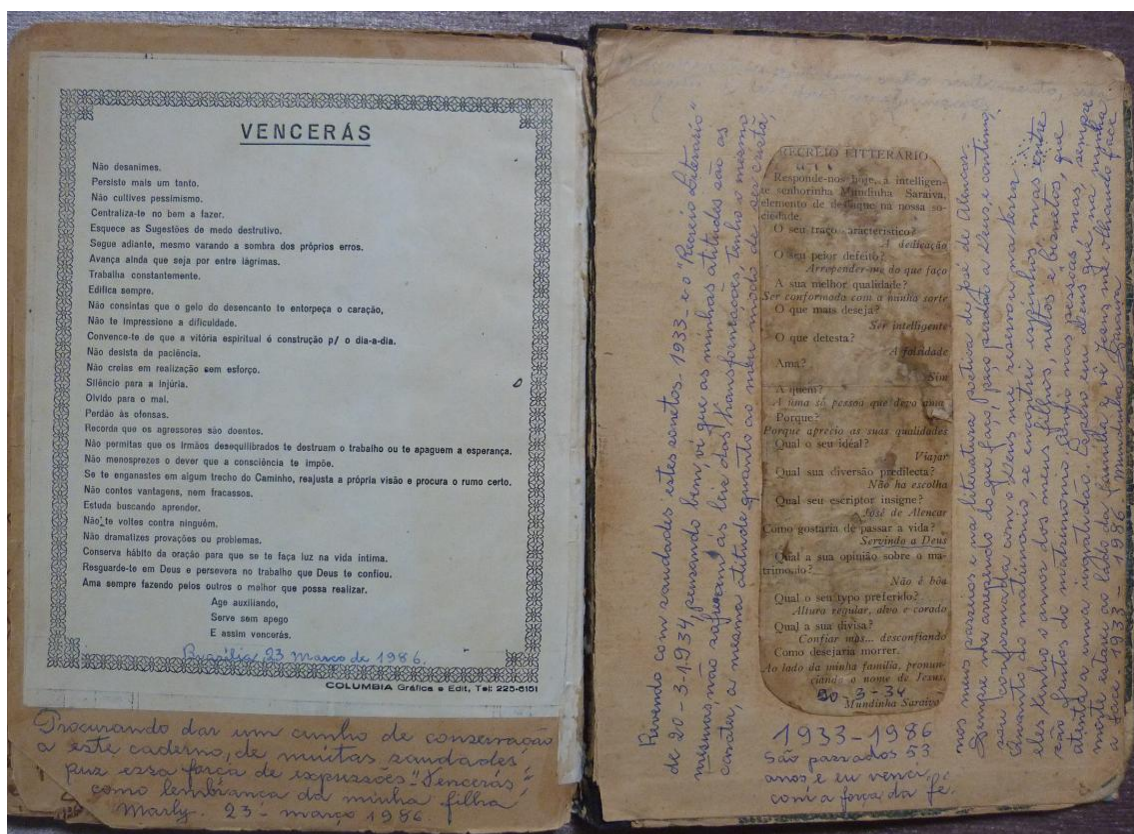 VENCERÁS
Não desanimes.
Persiste mais um tanto.
Não cultives pessimismo.
Centraliza-te no bem a fazer.
Esquece as Sugestões do medo destrutivo.
Segue adiante, mesmo varando a sombra dos próprios erros.
Avança ainda que seja por entre lágrimas.
Trabalha constantemente.
Edifica sempre.
Não consintas que o gelo do desencanto te entorpeça o caração,
Não te impressione a dificuldade.
Convence-te de que a vitória espiritual é construção p/ o dia-a-dia.
Não desista da paciência.
Não creias em realização sem esforço.
Silêncio para a injúria.
Olvido para o mal.
Perdão às ofensas.
Recorda que os agressores são doentes.
Não permitas que os irmãos desequilibrados te destruam o trabalho ou te apaguem a esperança.
Não menosprezes o dever que a consciência te impõe.
Se te enganastes em algum trecho do Caminho, reajusta a própria visão e procura o rumo certo.
Não contes vantagens, nem fracassos.
Estuda buscando aprender.
Não te voltes contra ninguém.
Não dramatizes provações ou problemas.
Conserva hábito da oração para que se te faça luz na vida íntima.
Resguarde-te em Deus e persevera no trabalho que Deus te confiou.
Ama sempre fazendo pelos outros o melhor que possa realizar.
Age auxiliando,
Serve sem apego
E assim vencerás.
Brasília, 23 março de 1986.
COLUMBIA Gráfica e Edit, Tel: 225-6151
Procurando dar um cunho de conservação
a este caderno, de muitas saudades,
puz essa força de expressões "Vencerás"
como lembrança da minha filha
Marly. 23 - março 1986
Revendo com saudades estes sonetos. 1933, e o "Recreio Literário"
de 20-3-1934, pensando bem, vi que as minhas atitudes são as
mesmas, não sofreram às leis das transformações. Tenho o mesmo
carater, a mesma atitude quanto ao meu modo de ser cristã,
RECREIO LITTERARIO
Responde-nos hoje, a intelligen-
te senhorinha Mundinha Saraiva,
elemento de destaque na nossa so-
ciedade.
O seu traço aracteristico?
A dedicação
O seu peior defeito?
Arrepender-me do que faço
A sua melhor qualidade?
Ser conformada com a minha sorte
O que mais deseja?
Ser intelligente
O que detesta?
A falsidade
Ama?
Sim
A quem?
A uma só pessoa que
Porque?
Porque aprecio as suas qualidades
Qual o seu ideal?
Viajar
Qual sua diversão predilecta?
Não ha escolha
Qual seu escriptor insigne?
José de Alencar
Como gostaria de passar a vida?
Servindo a Deus
Qual a sua opinião sobre o ma-
trimonio?
Não é bôa
Qual o seu typo preferido?
Altura regular, alvo e corado
Qual a sua divisa?
Confiar mas... desconfiando
Como desejaria morrer.
Ao lado da minha familia, pronun-
ciando o nome de Jesus.
20-3-34
Mundinha Saraiva
1933-1986
São passados 53
anos e eu venci,
com a força da fé.
nos meus passeios e na literatura poetica de José de Alencar.
Sempre me arrependo do que faço, pois perdão a Deus, e continuo
são conformada com o Deus me reservou na terra.
Quanto ao matrimonio se encontrei espinhos, mas entre
eles tenho o amor dos meus filhos, netos e bisnetos, que
são frutos do matrimonio. Confio nas pessoas mas, sempre
atenta a uma ingratidão. Espero em Deus que na minha
morte estarei ao lado da família, e Jesus me olhando face
a face. 1933-1986. Mundinha Saraiva